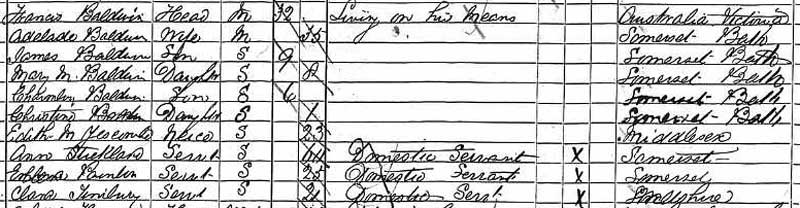 Francis Baldwin Head M 32 Living on his Means Australia Victoria
Adelade Baldwin Wife M 35 Somerset Bath
James Baldwin Son S 9 Somerset Bath
Mary M. Baldwin Daughtr S 8 Somerset Bath
Baldwin Son S 6 Somerset Bath
Christine Baldwin Daughtr S 1 Somerset Bath
Edith M Neice S 23 Middlesex
Ann Strickland Servt S Domestic Servant X Somerset
Servt S 25 Domestic Servant X Somerset
Clara Servt S 21 Domestic Servt X